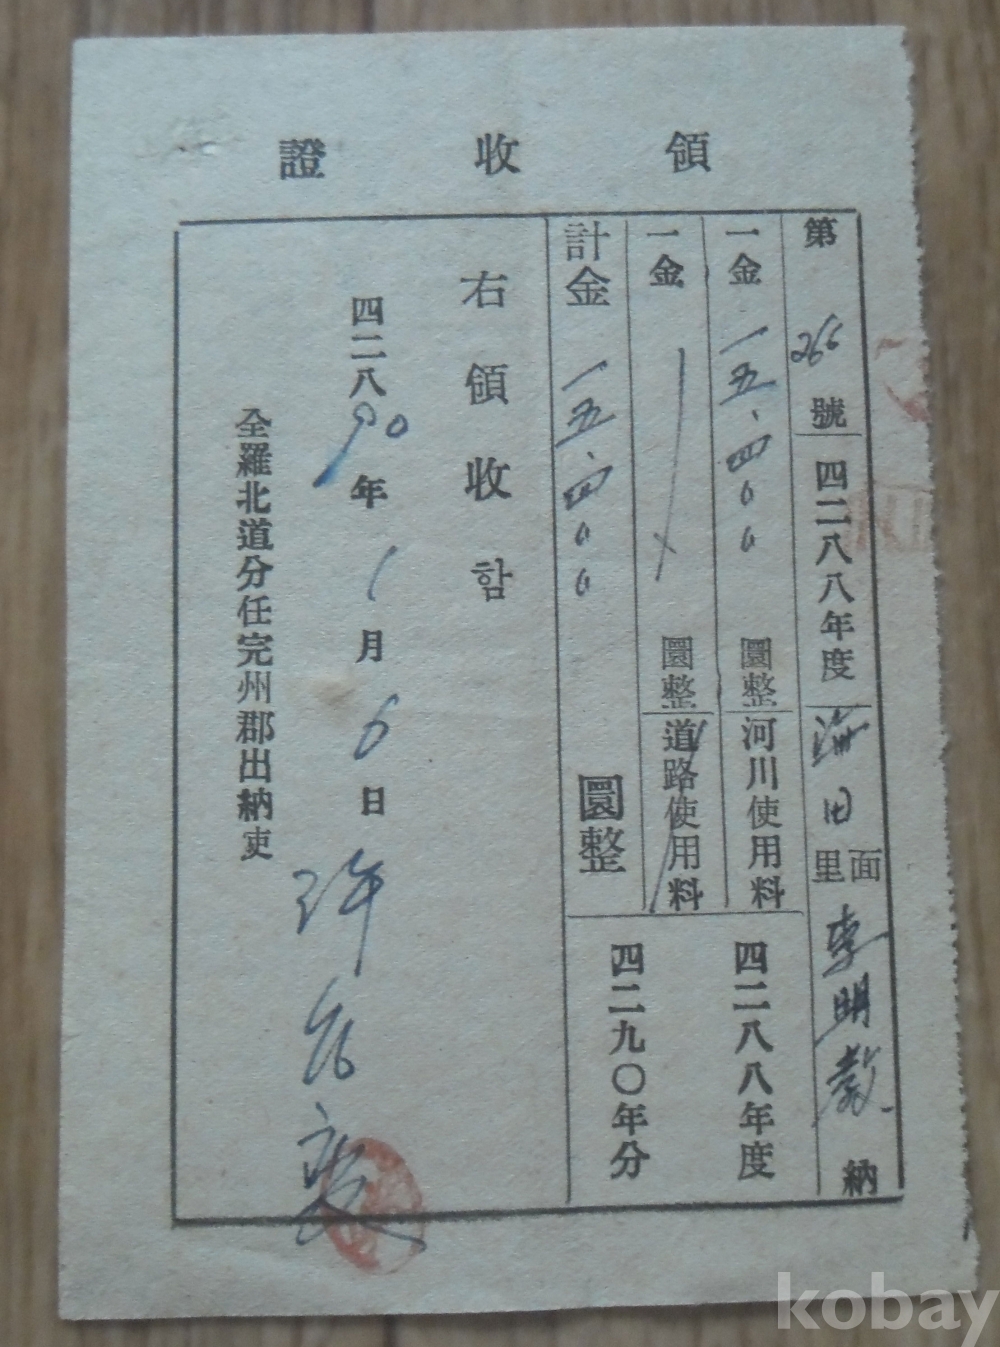 領收證
第266號 四二八八年度 海田 里面 李明敎 納
一金一五、四〇〇圜整 河川使用料
一金 圜整 道路使用料
四二八八年度
四二九〇年分
計金一五、四〇〇圜整
右領收함
四二八90年1月6日
全羅北道分任完州郡出納吏
許
kobay